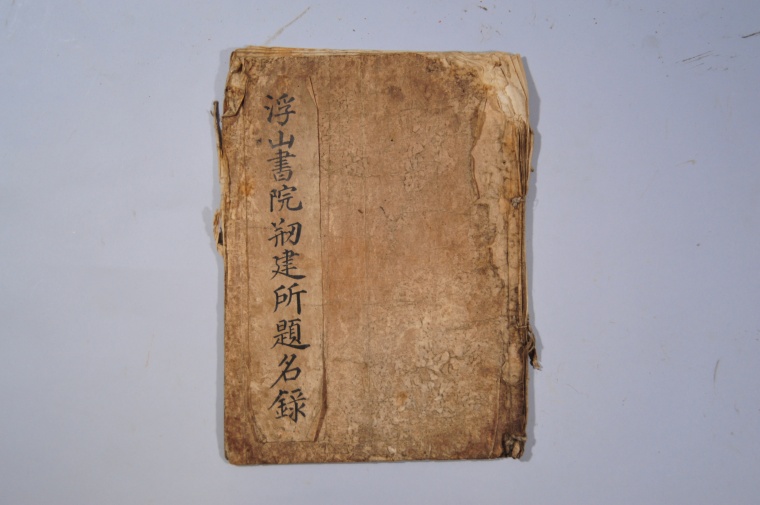 浮山書院剏建所題名錄